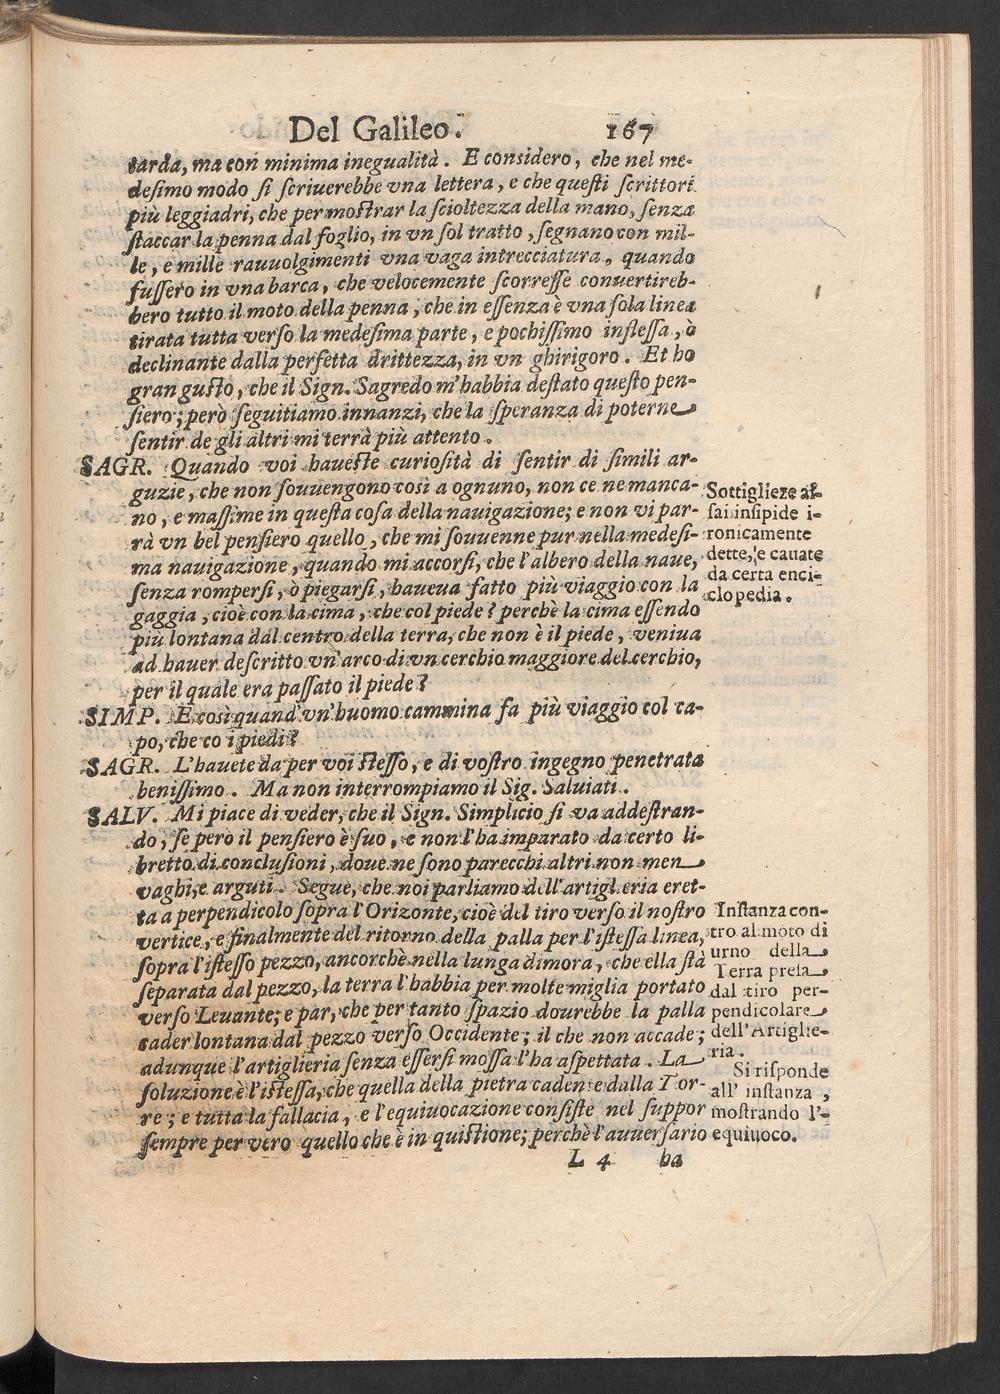 Del Galileo. 167
tarda, ma con minima inegualità. E considero, che nel me-
desimo modo si scriuerebbe vna lettera, e che questi scrittori
più leggiadri, che per mostrar la scioltezza della mano, senza
staccar la penna dal foglio, in vn sol tratto, segnano con mil-
le, e mille rauuolgimenti vna vaga intrecciatura, quando
fussero in vna barca, che velocemente scorresse conuertireb-
bero tutto il moto della penna, che in essenza è vna sola linea
tirata tutta verso la medesima parte, e pochissimo inflessa, ò
declinante dalla perfetta drittezza, in vn ghirigoro. Et ho
gran gusto, che il Sign. Sagredo m'habbia destato questo pen-
siero; però seguitiamo innanzi, che la speranza di poterne
sentir de gli altri mi terrà più attento.
SAGR. Quando voi haueste curiosità di sentir di simili ar-
guzie, che non souuengono così a ognuno, non ce ne manca-
no, e massime in questa cosa della nauigazione; e non vi par-
rà vn bel pensiero quello, che mi souuenne pur nella medesi-
ma nauigazione, quando mi accorsi, che l'albero della naue,
senza rompersi, ò piegarsi, haueua fatto più viaggio con la
gaggia, cioè con la cima, che col piede? perchè la cima essendo
più lontana dal centro della terra, che non è il piede, veniua
ad hauer descritto vn'arco di vn cerchio maggiore del cerchio,
per il quale era passato il piede?
Sottiglieze as-
sai insipide i-
ronicamente
dette, e cauate
da certa enci-
clopedia.
SIMP. E così quand'vn'huomo cammina fa più viaggio col ca-
po, che co i piedi?
SAGR. L'hauete da per voi stesso, e di vostro ingegno penetrata
benissimo. Ma non interrompiamo il Sig. Saluiati.
SALV. Mi piace di veder, che il Sign. Simplicio si va addestran-
do, se però il pensiero è suo, e non l'ha imparato da certo li-
bretto di conclusioni, doue ne sono parecchi altri non men
vaghi, e arguti. Segue, che noi parliamo dell'artiglieria eret-
ta a perpendicolo sopra l'Orizonte, cioè del tiro verso il nostro
vertice, e finalmente del ritorno della palla per l'istessa linea,
sopra l'istesso pezzo, ancorchè nella lunga dimora, che ella stà
separata dal pezzo, la terra l'habbia per molte miglia portato
verso Leuante; e par, che per tanto spazio dourebbe la palla
cader lontana dal pezzo verso Occidente; il che non accade;
adunque l'artiglieria senza essersi mossa l'ha aspettata. La
soluzione è l'istessa, che quella della pietra cadente dalla Tor-
re; e tutta la fallacia, e l'equiuocazione consiste nel suppor
sempre per vero quello che è in quistione; perchè l'auuersario
Instanza con-
tro al moto di
urno della
Terra presa
dal tiro per-
pendicolare
dell'Artiglie-
ria.
Si risponde
all' instanza,
mostrando l'-
equiuoco.
L 4 ha